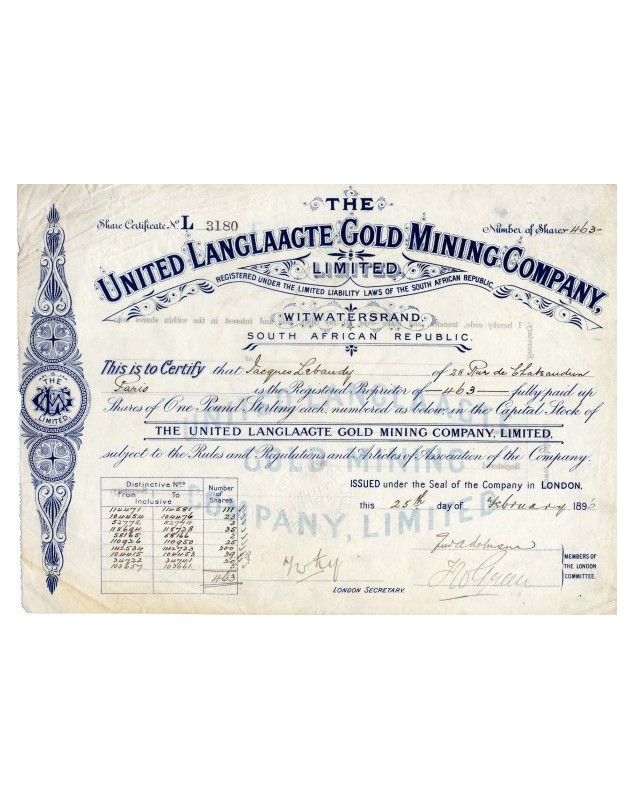 THE
Share Certificate No. L 3180
Number of Shares 463-
UNITED LANGLAAGTE GOLD MINING COMPANY,
LIMITED,
REGISTERED UNDER THE LIMITED LIABILITY LAWS OF THE SOUTH AFRICAN REPUBLIC.
WITWATERSRAND,
SOUTH AFRICAN REPUBLIC.
This is to Certify that Jacques Lebaudy of 28 Rue de Chateaudun
Paris is the Registered Proprietor of -463- fully paid up
Shares of One Pound Sterling each, numbered as below, in the Capital Stock of
THE UNITED LANGLAAGTE GOLD MINING COMPANY, LIMITED,
subject to the Rules and Regulations and Articles of Association of the Company.
THE
LIMITED
UNITED LANGLAAGTE
GOLD MINING
COMPANY, LIMITED
ISSUED under the Seal of the Company in LONDON,
this 25th day of February 1896
Distinctive Nos. Number of Shares
From To
Inclusive
114471 114581 111
104454 104476 23
52772 52774 3
118694 118728 35
58165 58166 2
110926 110950 25
142534 142733 200
104415 104453 39
34722 34741 20
103657 103661 5
463
LONDON SECRETARY.
MEMBERS OF
THE LONDON
COMMITTEE.